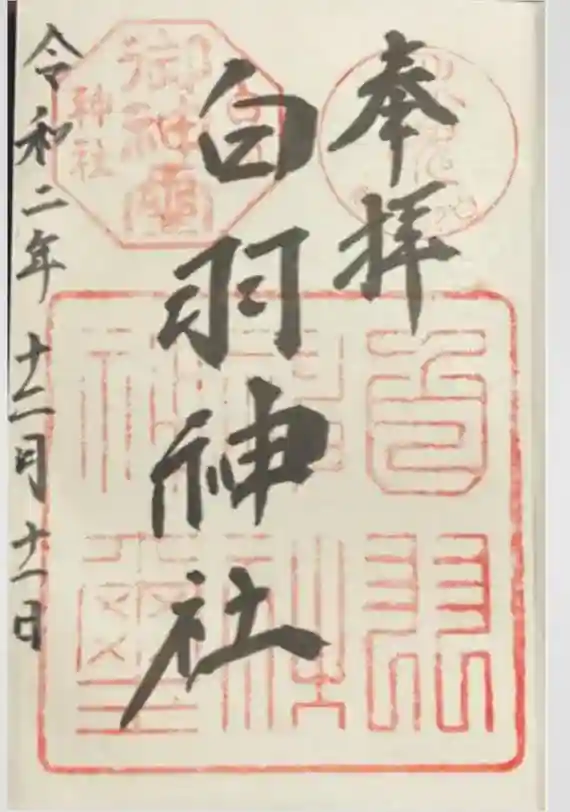 奉拝
白羽神社
令和二年十二月十一日
御神
神社
白羽
神社
神璽